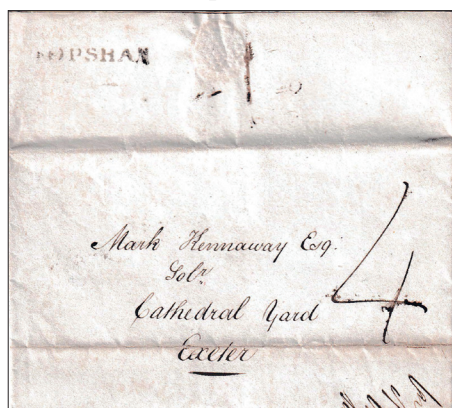 TOPSHAM
Mark Kennaway Esq.
Solr.
Cathedral Yard
Exeter
4